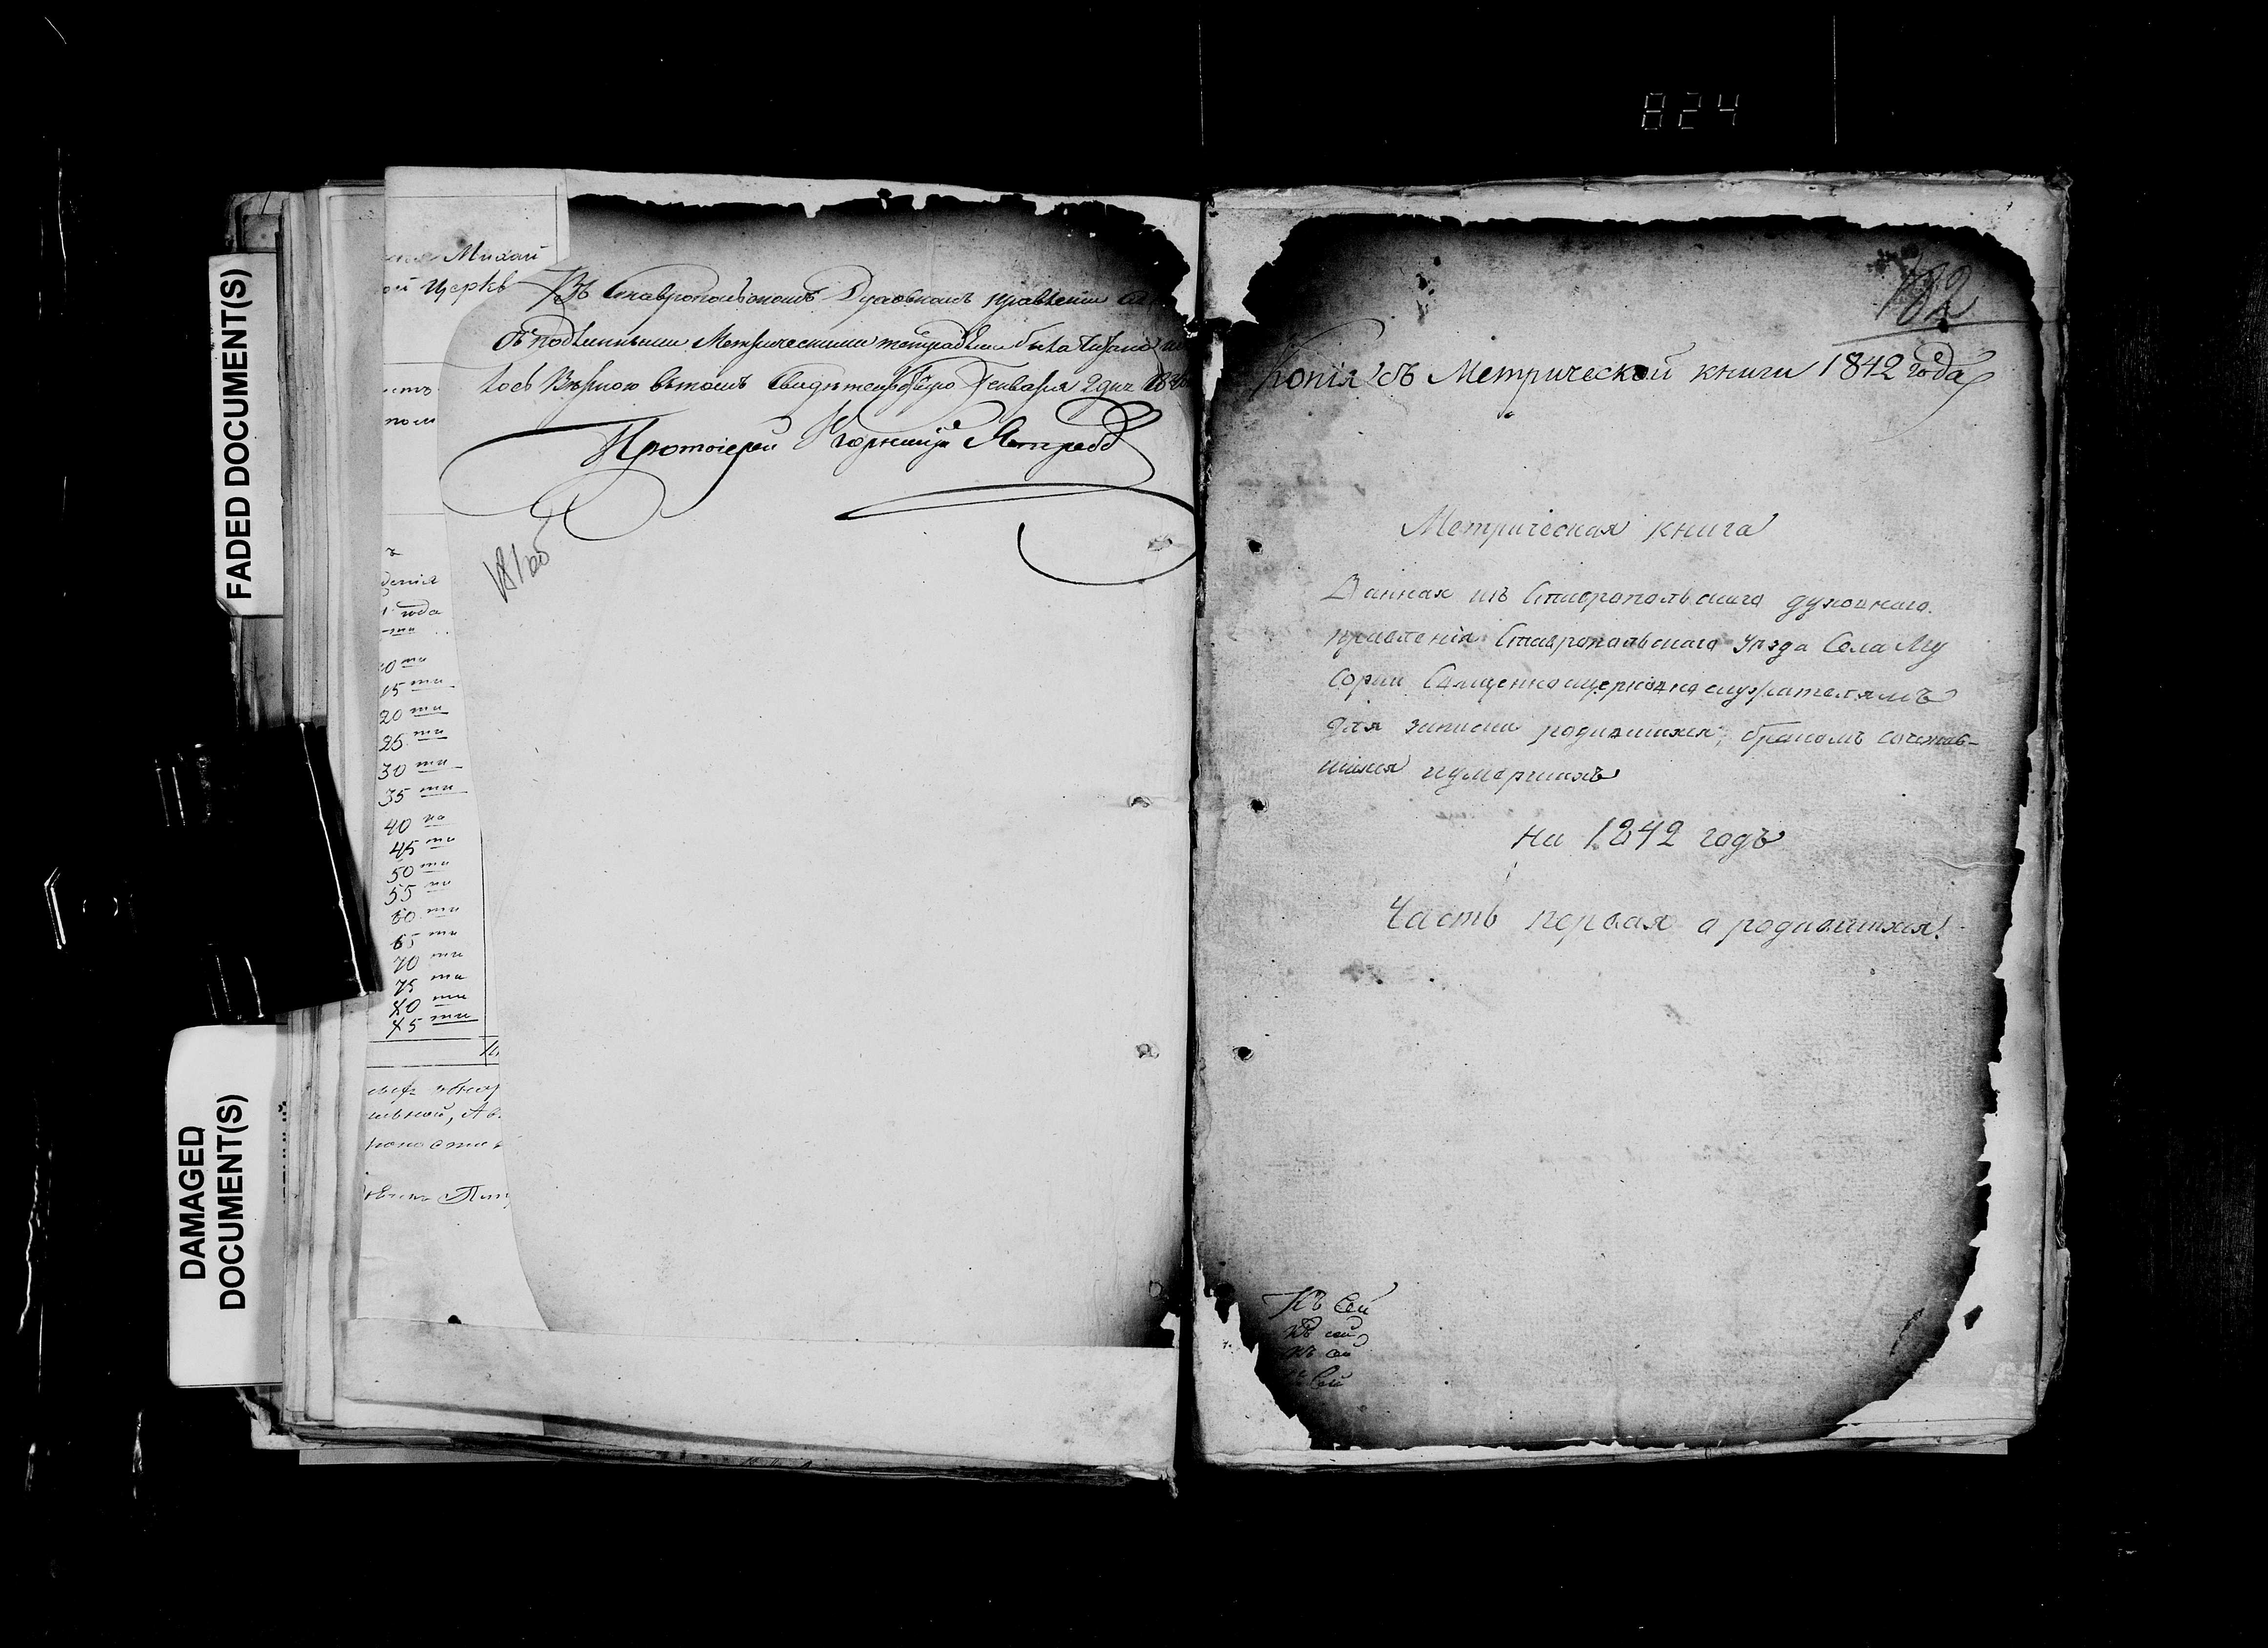 824
FADED DOCUMENT(S)
DAMAGED
DOCUMENT(S)
Михаи
ой церкв
1 года
15 ти
20 ти
25 ти
30 ти
35 ти
40 ка
45 ти
50 ти
55 ти
60 ти
65 ти
70 ти
75 ти
80 ти
85 ти
Въ Ставропольскомъ Духовномъ правленіи
съ подлинными Метрическими тетрадьми была читана
лось Верною въ томъ свидетельствую Генваря 2 дня
Протоіерей
181 об
182
Копія съ Метрической книги 1842 года
Метрическая книга
Данная изъ Ставропольскаго духовнаго
правленія Ставропольскаго уезда Села Му
сорки Священноцерковнослужителямъ
для записки родившихся, бракомъ сочетав-
шихся и умершихъ
на 1842 годъ
Часть первая о родившихся.
Къ Сей
Къ сей
Къ сей
Сей